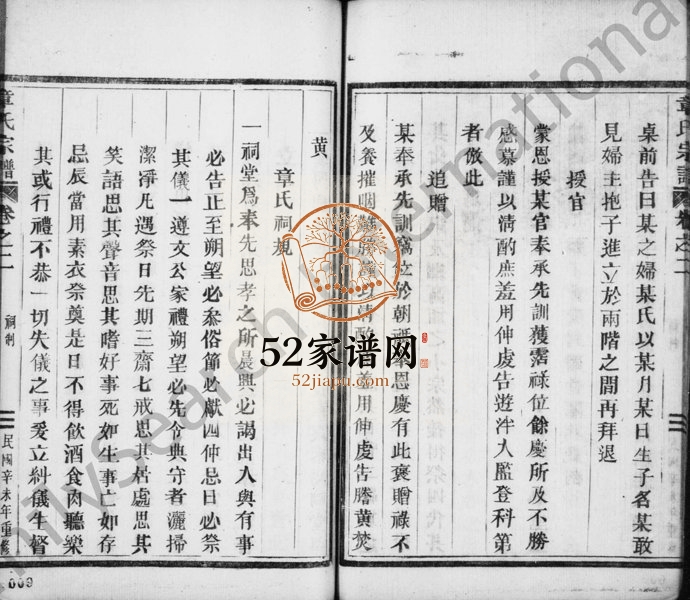 桌前告曰某之婦某氏以某月某日生子名某敢
見婦主抱子進立於兩階之間再拜退
授官
蒙恩授某官奉承先訓獲霑祿位餘慶所及不勝
感慕謹以清酌庶羞用伸虔告遊泮入監登科第
者倣此
追贈
某奉承先訓竊位於朝祗奉恩慶有此褒贈祿不
及養摧咽難 以清酌 羞用伸虔告謄黄焚
黄
章氏祠規
一祠堂爲奉先思孝之所晨興必謁出入與有事
必告正至朔望必叅俗節必獻四仲忌日必祭
其儀一遵文公家禮朔望必先令典守者灑掃
潔淨凡遇祭日先期三齋七戒思其居處思其
笑語思其聲音思其嗜好事死如生事亡如存
忌辰當用素衣祭奠是日不得飲酒食肉聽樂
其或行禮不恭一切失儀之事爰立糾儀生督
章氏宗譜
卷之二
祠制
民國辛未年重修
009
章氏宗譜
卷之二
52家谱网
52jiapu.com